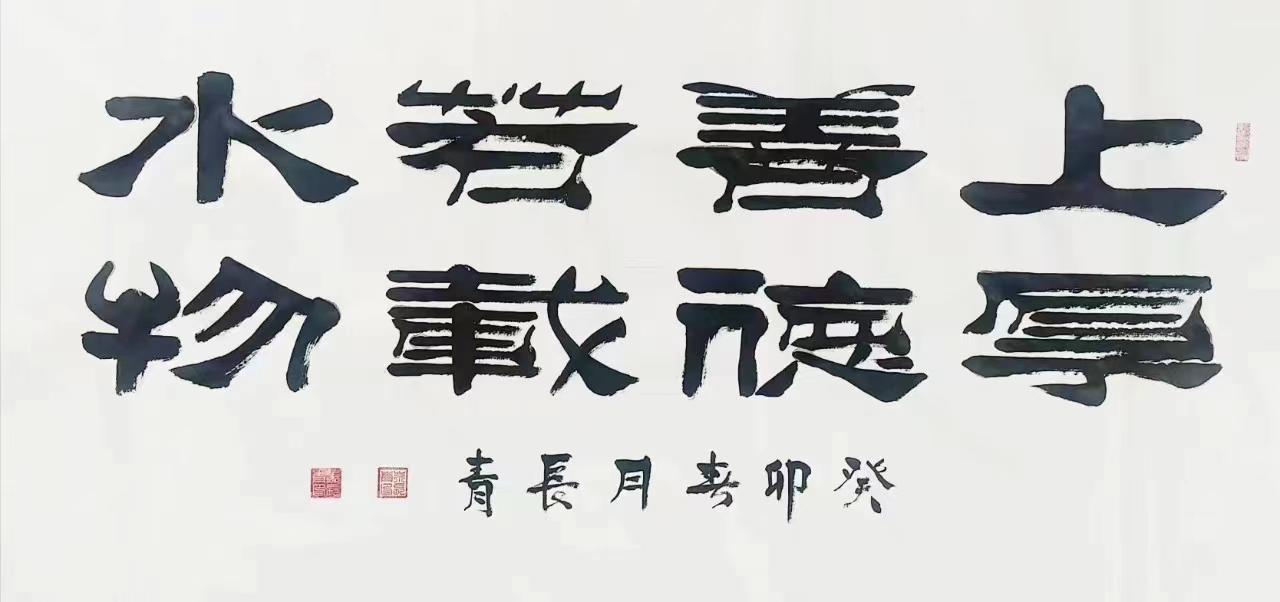 上善若水
厚德載物
癸卯春月長青